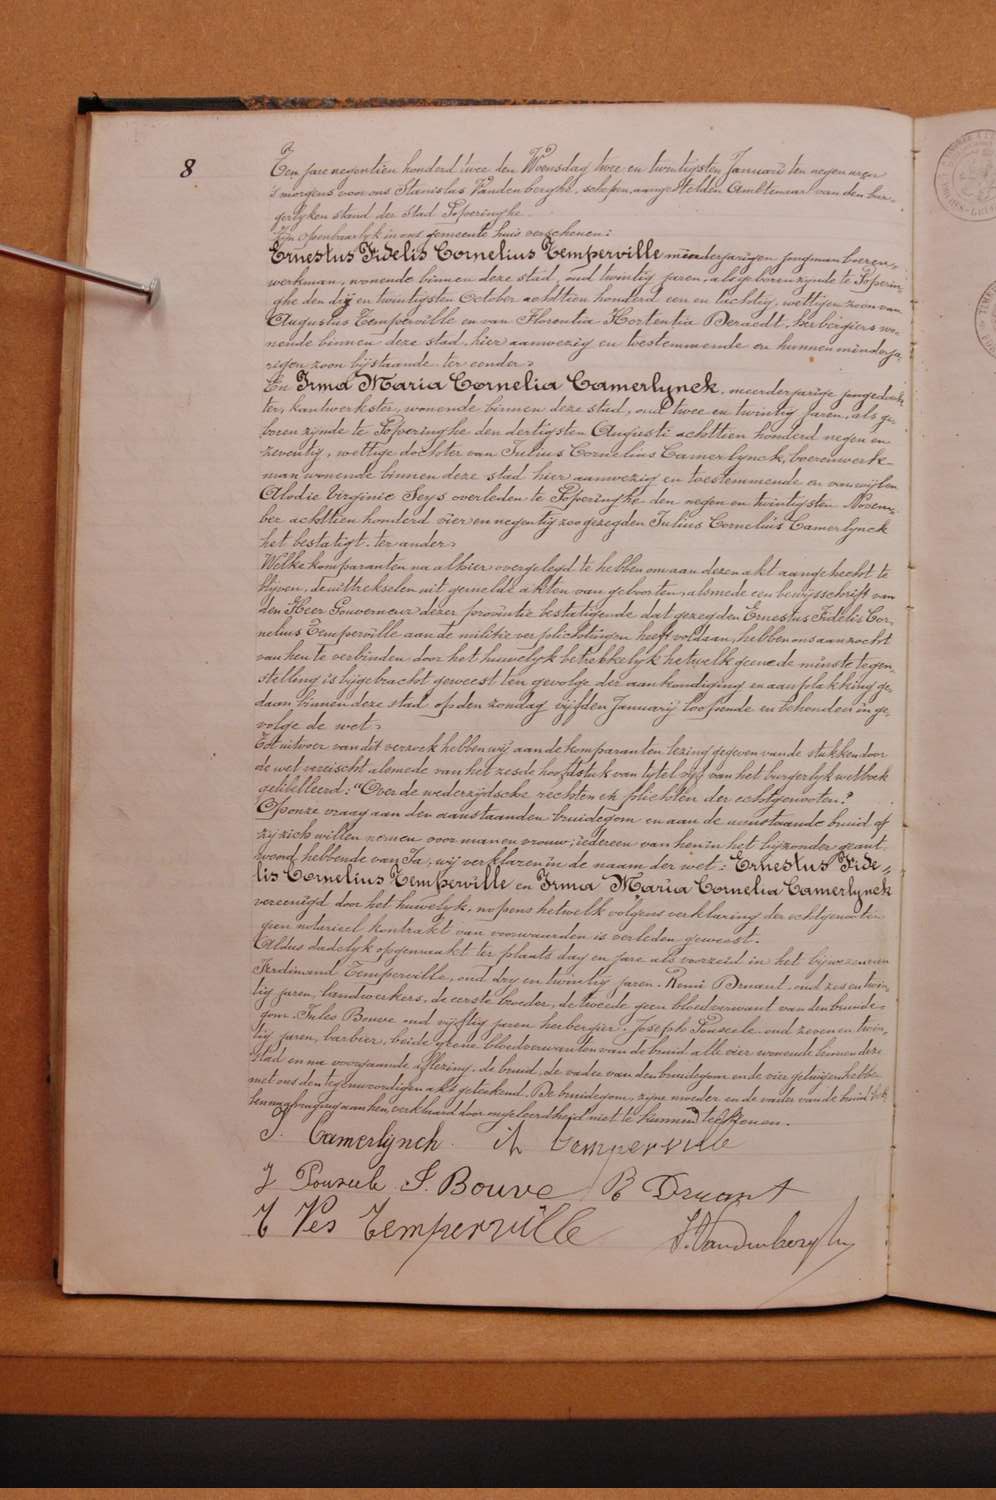 8
Ten jare negentien honderd twee den Woensdag twee en twintigsten Januari ten negen uren
's morgens voor ons Stanislas Vandenberghe, schepen, aangestelden Ambtenaar van den bur-
gerlyken stand der Stad Poperinghe.
Zijn openbaarlyk in ons gemeente huis verschenen:
Ernestus Fidelis Cornelius Temperville minderjarigen jongman boeren-
werkman, wonende binnen deze stad, oud twintig jaren, als geboren zynde te Poperin-
ghe den dry en twintigsten October achttien honderd een en tachtig, wettigen zoon van
Augustus Temperville en van Florentia Hortentia Deraedt, herbergiers wo-
nende binnen deze stad, hier aanwezig en toestemmende en hunnen minderja-
rigen zoon bijstaande. ter eender
En Irma Maria Cornelia Camerlynck, meerderjarige jongedoch-
ter, kantwerkster, wonende binnen deze stad, oud twee en twintig jaren, als ge-
boren zijnde te Poperinghe den dertigsten Augusti achttien honderd negen en
zeventig, wettige dochter van Julius Cornelius Camerlynck, boerenwerk-
man wonende binnen deze stad hier aanwezig en toestemmende en van wijlen
Alodie Virginie Seys overleden te Poperinghe den negen en twintigsten Novem-
ber achttien honderd vier en negentig zoo gezegden Julius Cornelius Camerlynck
het bestatigt. ter ander
Welke komparanten na alhier overgelegd te hebben om aan dezen akt aangehecht te
blijven, de uittrekselen uit gemelde akten van geboorten, alsmede een bewijsschrift van
den Heer Gouverneur dezer provintie bestatigende dat gezegden Ernestus Fidelis Cor-
nelius Temperville aan de militie verplichtingen heeft voldaan, hebben ons aanzocht
van hen te verbinden door het huwelyk betrekkelyk hetwelk geene de minste tegen-
stelling is bijgebracht geweest ten gevolge der aankondiging en aanplakking ge-
daan binnen deze stad op den zondag vijfden Januarij loopende en behouden in ge-
volge de wet
Tot uitvoer van dit verzoek hebben wij aan de komparanten lezing gegeven van de stukken door
de wet vereischt alsmede van het zesde hoofdstuk van tytel vijf van het burgerlyk wetboek
getitelleerd: "Over de wederzijdsche rechten en plichten der echtgenooten"
Op onze vraag aan den aanstaanden bruidegom en aan de aanstaande bruid of
zij zich willen nemen voor man en vrouw; iedereen van hen in het bijzonder geant-
woord hebbende van Ja, wij verklaren in de naam der wet: Ernestus Fide-
lis Cornelius Temperville en Irma Maria Cornelia Camerlynck
vereenigd door het huwelyk, nopens hetwelk volgens verklaring der echtgenooten
geen notarieel kontrakt van voorwaarden is verleden geweest.
Aldus dadelyk opgemaakt ter plaats dag en jare als voorzeid in het bijwezen van
Ferdinand Temperville, oud dry en twintig jaren. Remi Druant, oud zes en twin-
tig jaren, landwerkers, de eerste broeder, de tweede geen bloedverwant van den bruide-
gom. Jules Bouve oud vijftig jaren herbergier. Joseph Pouseele oud zeven en twin-
tig jaren, barbier, beide geene bloedverwanten van de bruid alle vier wonende binnen deze
stad en na voorgaande aflezing, de bruid, de vader van den bruidegom en de vier getuigen hebben
met ons den tegenwoordigen akt geteekend. De bruidegom, zijne moeder en de vader van de bruid heb-
ben na afvraging aan hen, verklaard door ongeleerdheid niet te kunnen teekenen.
I. Camerlynck Temperville
J Pouseele J. Bouve R Druant
Temperville S. Vandenberghe